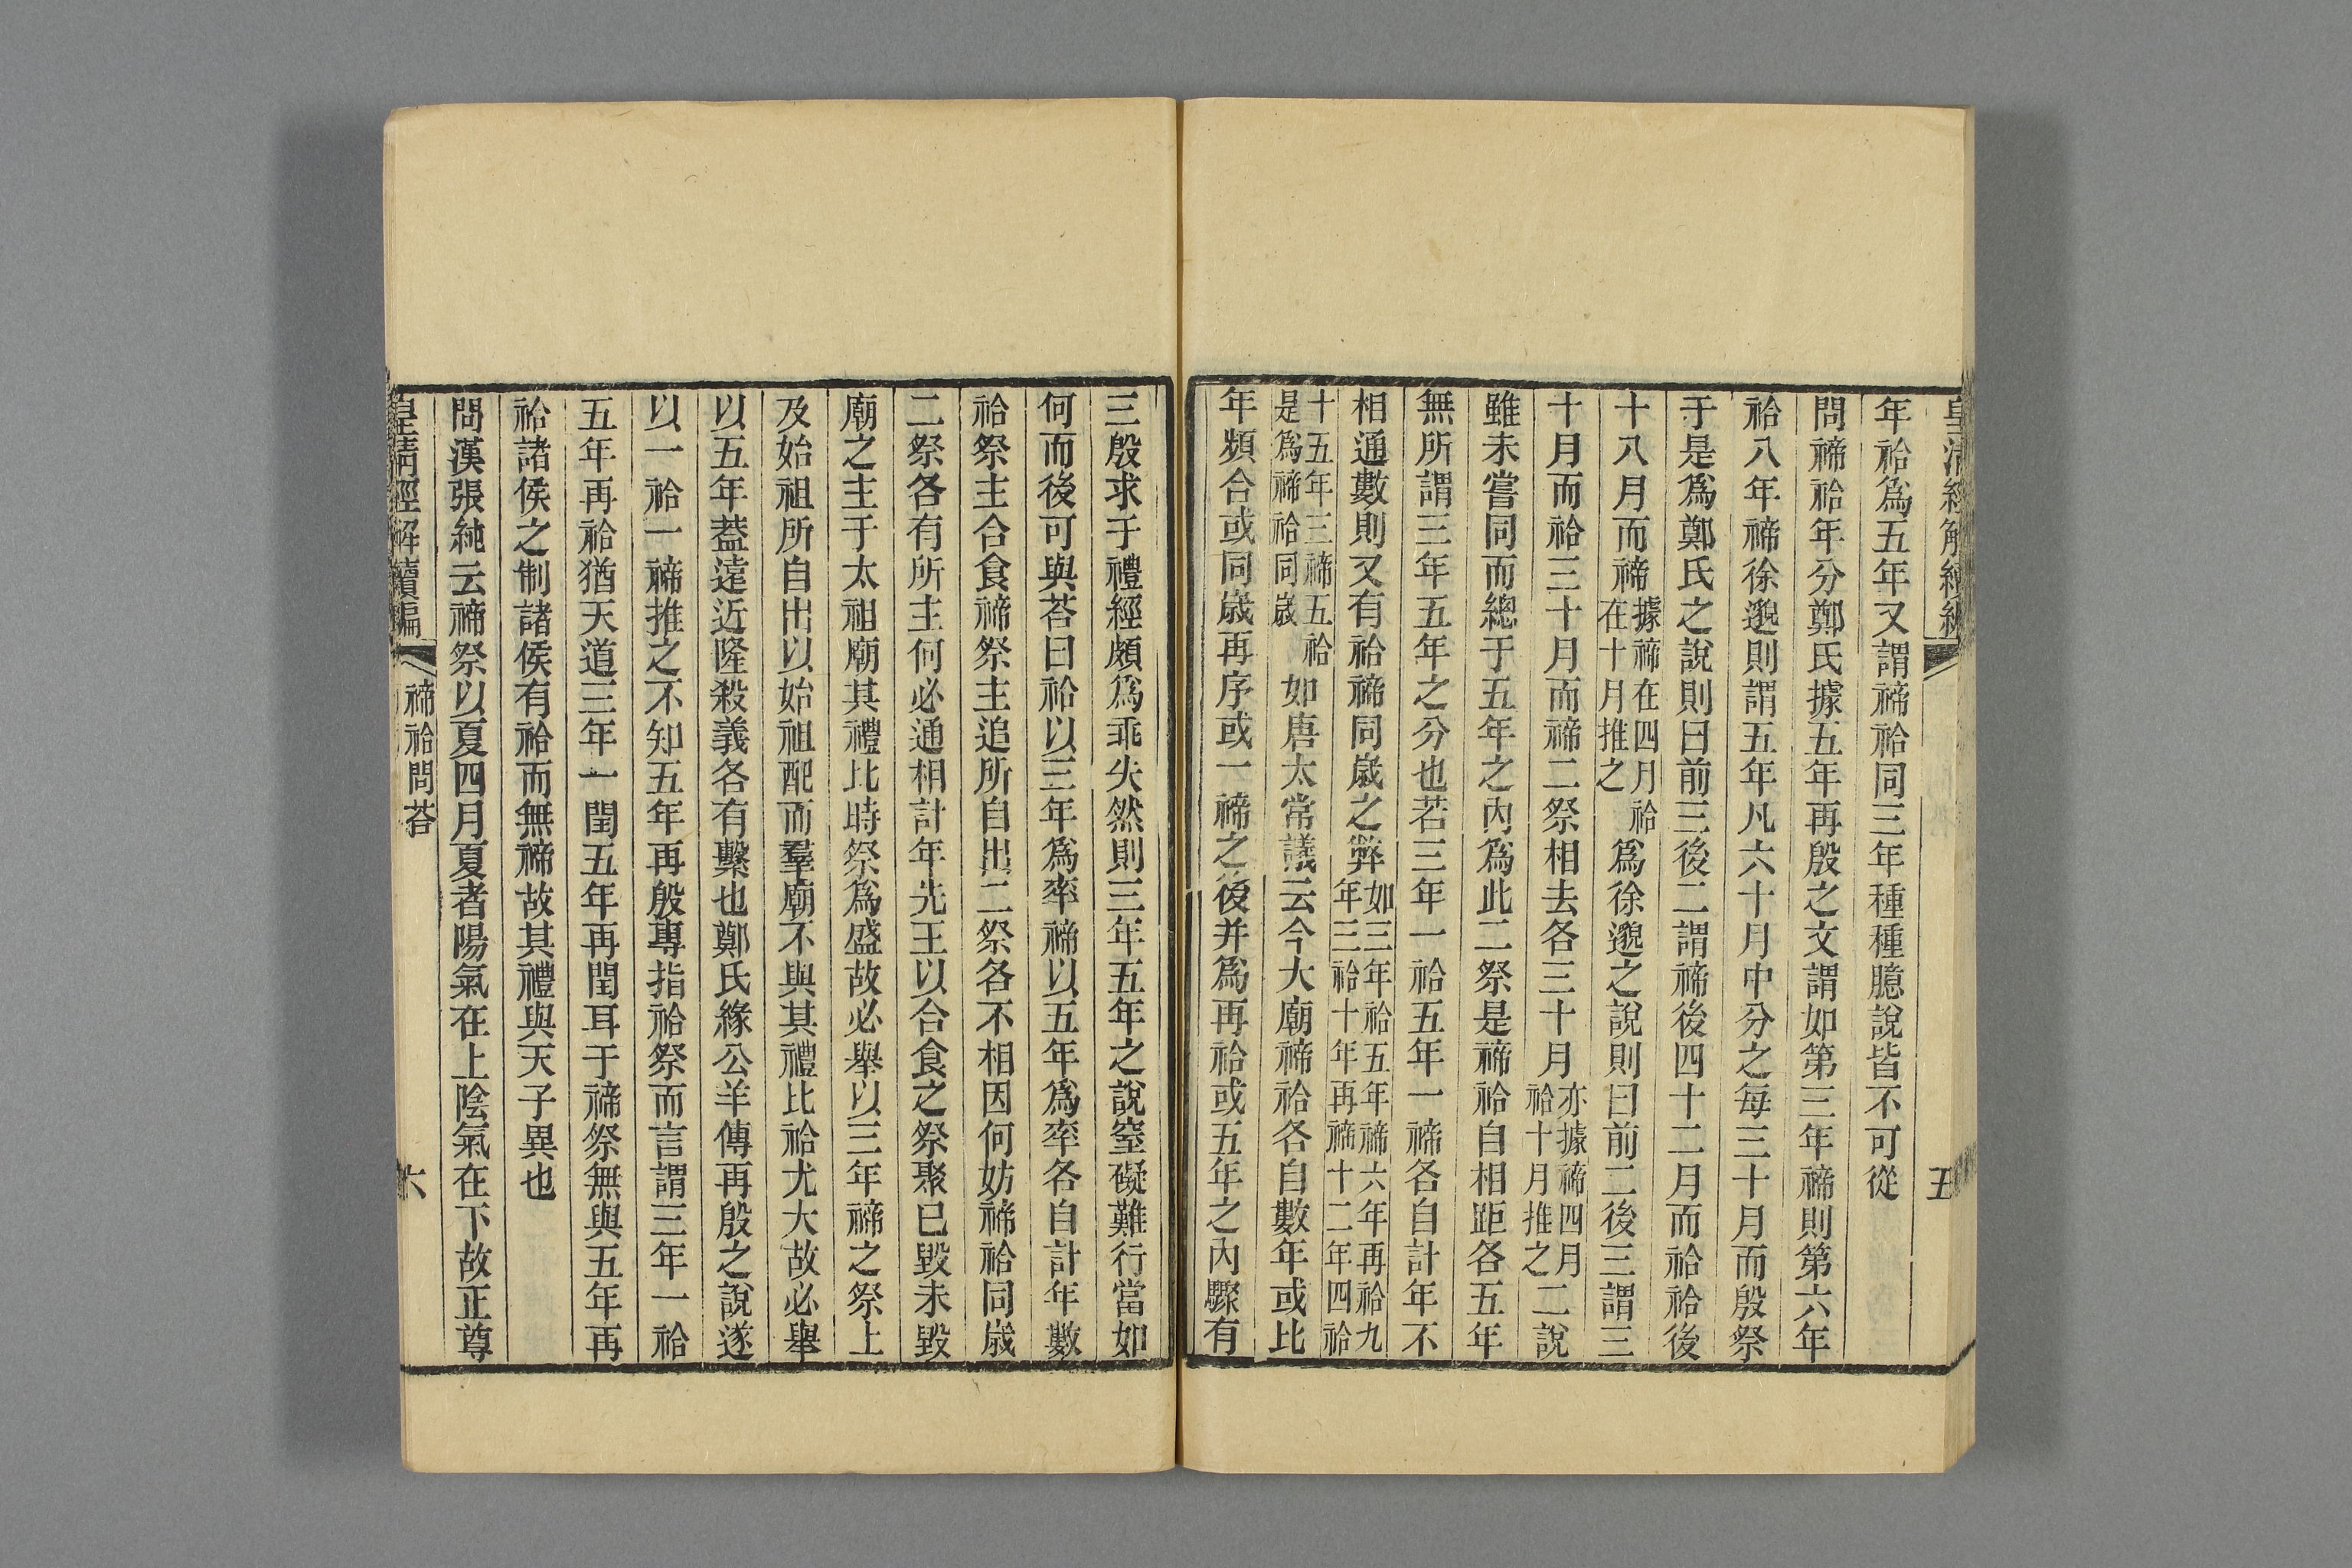 皇清經解續編
五
年祫爲五年又謂禘祫同三年種種臆說皆不可從
問禘祫年分鄭氏據五年再殷之文謂如第三年禘則第六年
祫八年禘徐邈則謂五年凡六十月中分之每三十月而殷祭
于是爲鄭氏之說則曰前三後二謂禘後四十二月而祫祫後
十八月而禘據禘在四月祫在十月推之爲徐邈之說則曰前二後三謂三
十月而祫三十月而禘二祭相去各三十月亦據禘四月祫十月推之二說
雖未嘗同而總于五年之內爲此二祭是禘祫自相距各五年
無所謂三年五年之分也若三年一祫五年一禘各自計年不
相通數則又有祫禘同歲之弊如三年祫五年禘六年再祫九年三祫十年再禘十二年四祫
十五年三禘五祫是爲禘祫同歲如唐太常議云今大廟禘祫各自數年或比
年頻合或同歲再序或一禘之後并爲再祫或五年之內驟有
三殷求于禮經頗爲乖失然則三年五年之說窒礙難行當如
何而後可與荅曰祫以三年爲率禘以五年爲率各自計年數
祫祭主合食禘祭主追所自出二祭各不相因何妨禘祫同歲
二祭各有所主何必通相計年先王以合食之祭聚已毀未毀
廟之主于太祖廟其禮比時祭爲盛故必舉以三年禘之祭上
及始祖所自出以始祖配而羣廟不與其禮比祫尤大故必舉
以五年葢遠近隆殺義各有繫也鄭氏緣公羊傳再殷之說遂
以一祫一禘推之不知五年再殷專指祫祭而言謂三年一祫
五年再祫猶天道三年一閏五年再閏耳于禘祭無與五年再
祫諸侯之制諸侯有祫而無禘故其禮與天子異也
問漢張純云禘祭以夏四月夏者陽氣在上陰氣在下故正尊
皇清經解續編
禘祫問荅
六